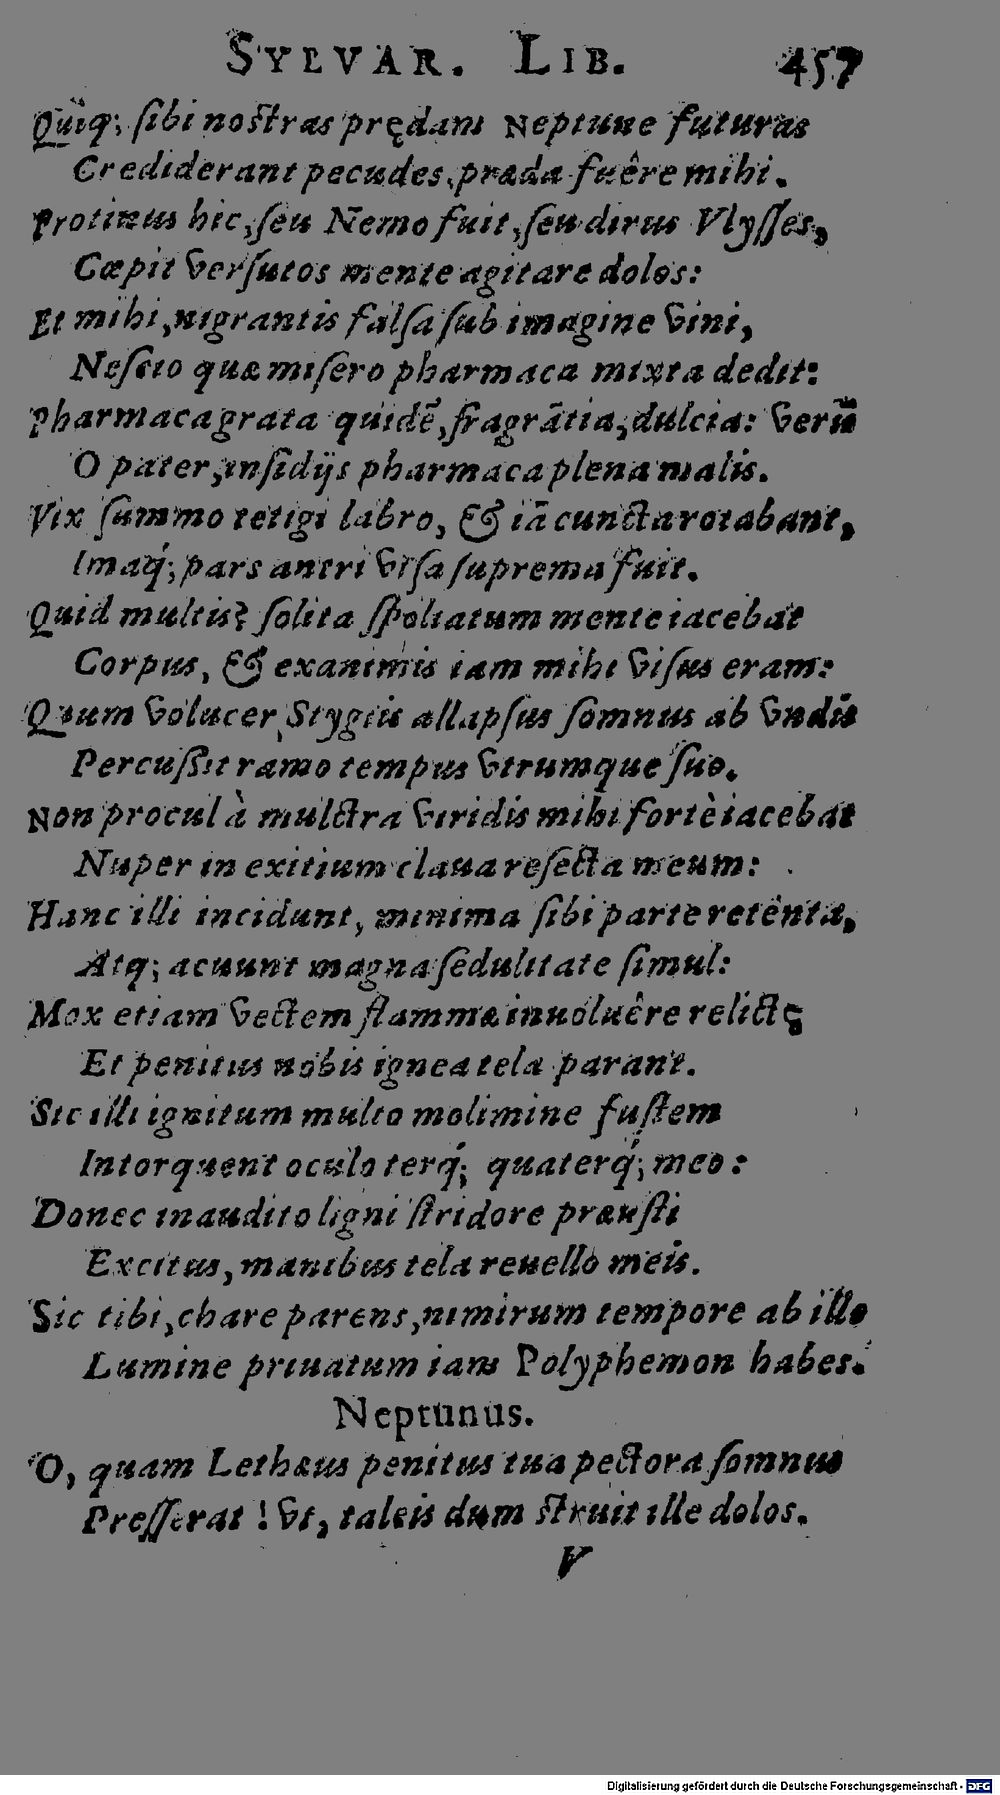 SYLVAR. LIB. 457
Quiq; ſibi noſtras prędam Neptune futuras
Crediderant pecudes, præda fuêre mihi.
Protinus hic, ſeu Nemo fuit, ſeu dirus Vlyſſes,
Cœpit verſutos mente agitare dolos:
Et mihi, nigrantis falſa ſub imagine vini,
Neſcio quæ miſero pharmaca mixta dedit:
Pharmaca grata quidẽ, fragrãtia, dulcia: verũ
O pater, inſidijs pharmaca plena malis.
Vix ſummo tetigi labro, & iã cuncta rotabant,
Imaq́; pars antri viſa ſuprema fuit.
Quid multis? ſolita ſpoliatum mente iacebat
Corpus, & exanimis iam mihi viſus eram:
Quum volucer Stygiis allapſus ſomnus ab vndis
Percuſſit ramo tempus vtrumque ſuo.
Non procul à mulctra viridis mihi fortè iacebat
Nuper in exitium claua reſecta meum:
Hanc illi incidunt, minima ſibi parte retenta,
Atq; acuunt magna ſedulitate ſimul:
Mox etiam vectem flammæ inuoluêre relictę
Et penitus nobis ignea tela parant.
Sic illi ignitum multo molimine fuſtem
Intorquent oculo terq́; quaterq́; meo:
Donec inaudito ligni ſtridore præuſti
Excitus, manibus tela reuello meis.
Sic tibi, chare parens, nimirum tempore ab illo
Lumine priuatum iam Polyphemon habes.
Neptunus.
O, quam Lethæus penitus tua pectora ſomnus
Preſſerat! vt, taleis dum ſtruit ille dolos.
V
Digitalisierung gefördert durch die Deutsche Forschungsgemeinschaft - DFG